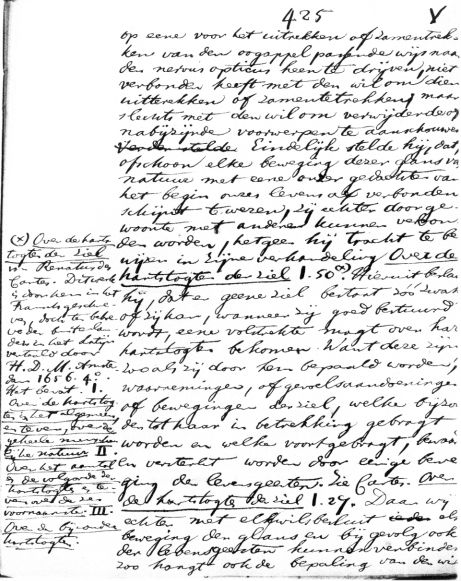 425
V
op eene voor het uitrekken of zamentrek-
ken van den oogappel passende wijs naar
den nervus opticus heen te drijven, niet
verbonden heeft met den wil om dien
uitterekken of zamentetrekken, maar
slechts met den wil om verwijderde of
nabijzijnde voorwerpen te aanschouwen
Eindelijk stelde hij, dat,
opschoon elke beweging dezer glans van
natuur met eene onzer gedachten van
het begin onzes levens af verbonden
schijnt te wezen, zij echter door ge-
woonte met anderen kunnen verbon
den worden, hetgeen hij tracht te be
wijzen in zijne verhandeling Over de
hartstogten der ziel 1. 50. Hieruit beslui
hij, dat er geene ziel bestaat zóó zwak
of zij kan, wanneer zij goed bestuurd
wordt, eene volstrekte magt over har
hartstogten bekomen. Want deze zijn
zooals zij door hem bepaald worden,
waarnemingen, of gevoelsaandoeningen
of bewegingen der ziel, welke bijzon
der tot haar in betrekking gebragt
worden en welke voortgebragt, bewaar
en versterkt worden door eenige bewe
ging der levensgeesten. Zie Cartes. Over
de hartstogten der ziel 1. 27. Daar wij
echter met elk wilsbesluit als
beweging den glans en bij gevolg ook
der levensgeesten kunnen verbinden
zoo hangt ook de bepaling van den wil
(x) Over de harts
togten der ziel
van Renatus des
Cartes. Dit werk
is door hem in het
Fransch geschre
ven, doch ten beho
ve der buitenlan
ders in het Latijn
vertaald door
H. D. M. Amste
dam 1656. 4o.
Het bevat I.
Over de hartstog
ten in het algemeen
en tevens, over de
geheele mensche
lijke natuur II.
Over het aantal
en de volgorde der
hartstogten en te
vens over de zes
voornaamste. III.
Over de bijzondere
hartstogten.